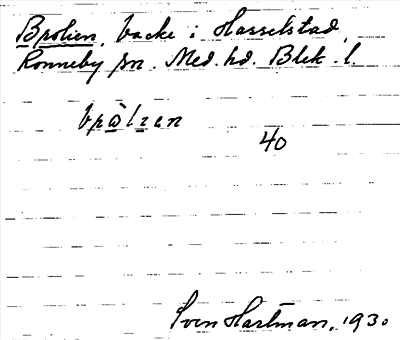 Brolien, backe i Hasselstad,
Ronneby sn. Med. hd. Blek. l.
bròlien
40
Sven Hartman, 1930